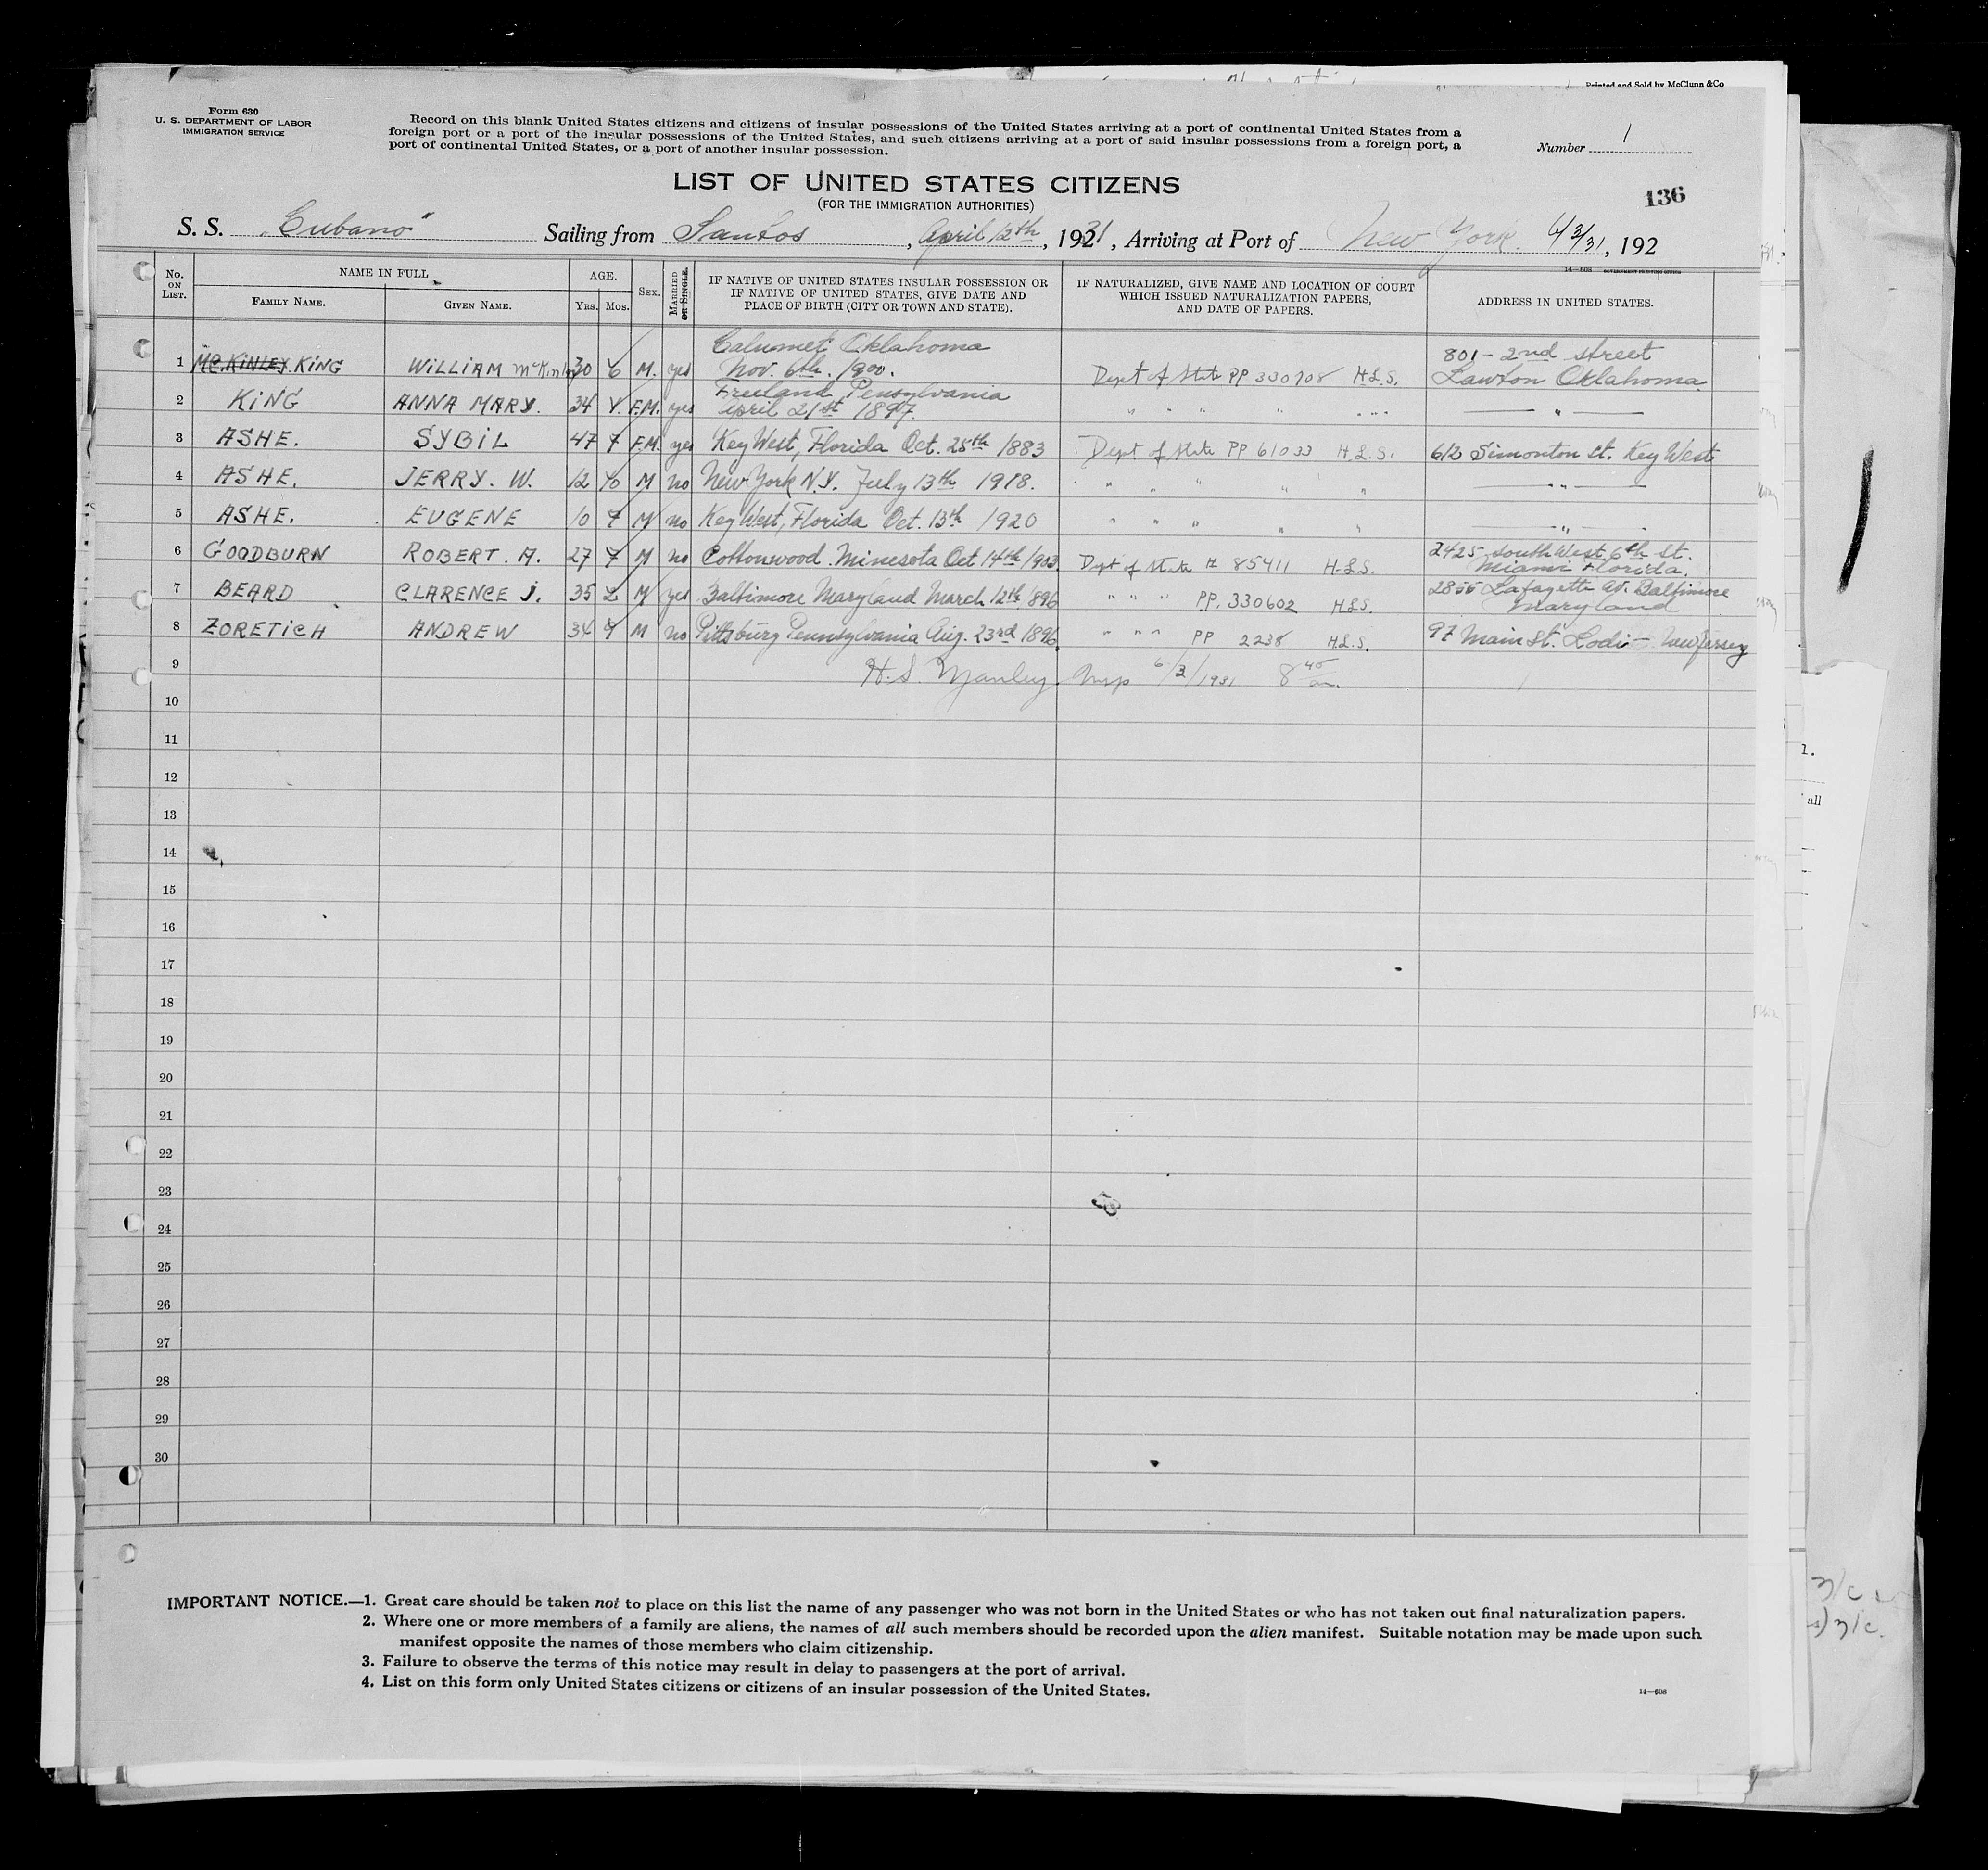 Printed and Sold by McClunn &Co
Form 630
U. S. DEPARTMENT OF LABOR
IMMIGRATION SERVICE
Record on this blank United States citizens and citizens of insular possessions of the United States arriving at a port of continental United States from a
foreign port or a port of the insular possessions of the United States, and such citizens arriving at a port of said insular possessions from a foreign port, a
port of continental United States, or a port of another insular possession.
Number 1
LIST OF UNITED STATES CITIZENS
(FOR THE IMMIGRATION AUTHORITIES)
136
S. S. "Cubano" Sailing from Santos, April 12th, 1931, Arriving at Port of New York. 6/3/31, 192
14—608 GOVERNMENT PRINTING OFFICE
No. ON LIST. NAME IN FULL AGE. SEX. MARRIED OR SINGLE. IF NATIVE OF UNITED STATES INSULAR POSSESSION OR IF NATIVE OF UNITED STATES, GIVE DATE AND PLACE OF BIRTH (CITY OR TOWN AND STATE). IF NATURALIZED, GIVE NAME AND LOCATION OF COURT WHICH ISSUED NATURALIZATION PAPERS, AND DATE OF PAPERS. ADDRESS IN UNITED STATES.
FAMILY NAME. GIVEN NAME. Yrs. Mos.
1 McKINLEY KING WILLIAM McKinley 30 6 M. yes Calumet Oklahoma Nov. 6th. 1900. Dept of State PP 330708 H.L.S. 801 - 2nd street Lawton Oklahoma
2 KING ANNA MARY. 34 F.M. yes Freeland Pensylvania April 21st 1897. " " " " " " " "
3 ASHE. SYBIL 47 7 F.M. yes Key West, Florida Oct. 25th 1883 Dept of State PP 61033 H.L.S. 612 Simonton St. Key West
4 ASHE. JERRY. W. 12 10 M no New York N.Y. July 13th 1918. " " " " " "
5 ASHE. EUGENE 10 7 M no Key West, Florida Oct. 13th 1920 " " " " " "
6 GOODBURN ROBERT. A. 27 7 M no Cottonwood Minesota Oct 14th 1903. Dept of State # 85411 H.L.S. 2425 South West 6th St. Miami Florida.
7 BEARD CLARENCE J. 35 2 M yes Baltimore Maryland March 12th 1896 " " " PP. 330602 H.L.S. 2855 Lafayette Av. Baltimore Maryland
8 ZORETICH ANDREW 34 9 M no Pittsburg Pennsylvania Aug. 23rd 1896. " " " PP 2238 H.L.S. 97 Main St. Lodi - New Jersey
9 H.S. Manley Insp 6/3/1931 8 45 am.
10
11
12
13
14
15
16
17
18
19
20
21
22
23
24
25
26
27
28
29
30
IMPORTANT NOTICE.—1. Great care should be taken not to place on this list the name of any passenger who was not born in the United States or who has not taken out final naturalization papers.
2. Where one or more members of a family are aliens, the names of all such members should be recorded upon the alien manifest. Suitable notation may be made upon such
manifest opposite the names of those members who claim citizenship.
3. Failure to observe the terms of this notice may result in delay to passengers at the port of arrival.
4. List on this form only United States citizens or citizens of an insular possession of the United States.
14—608